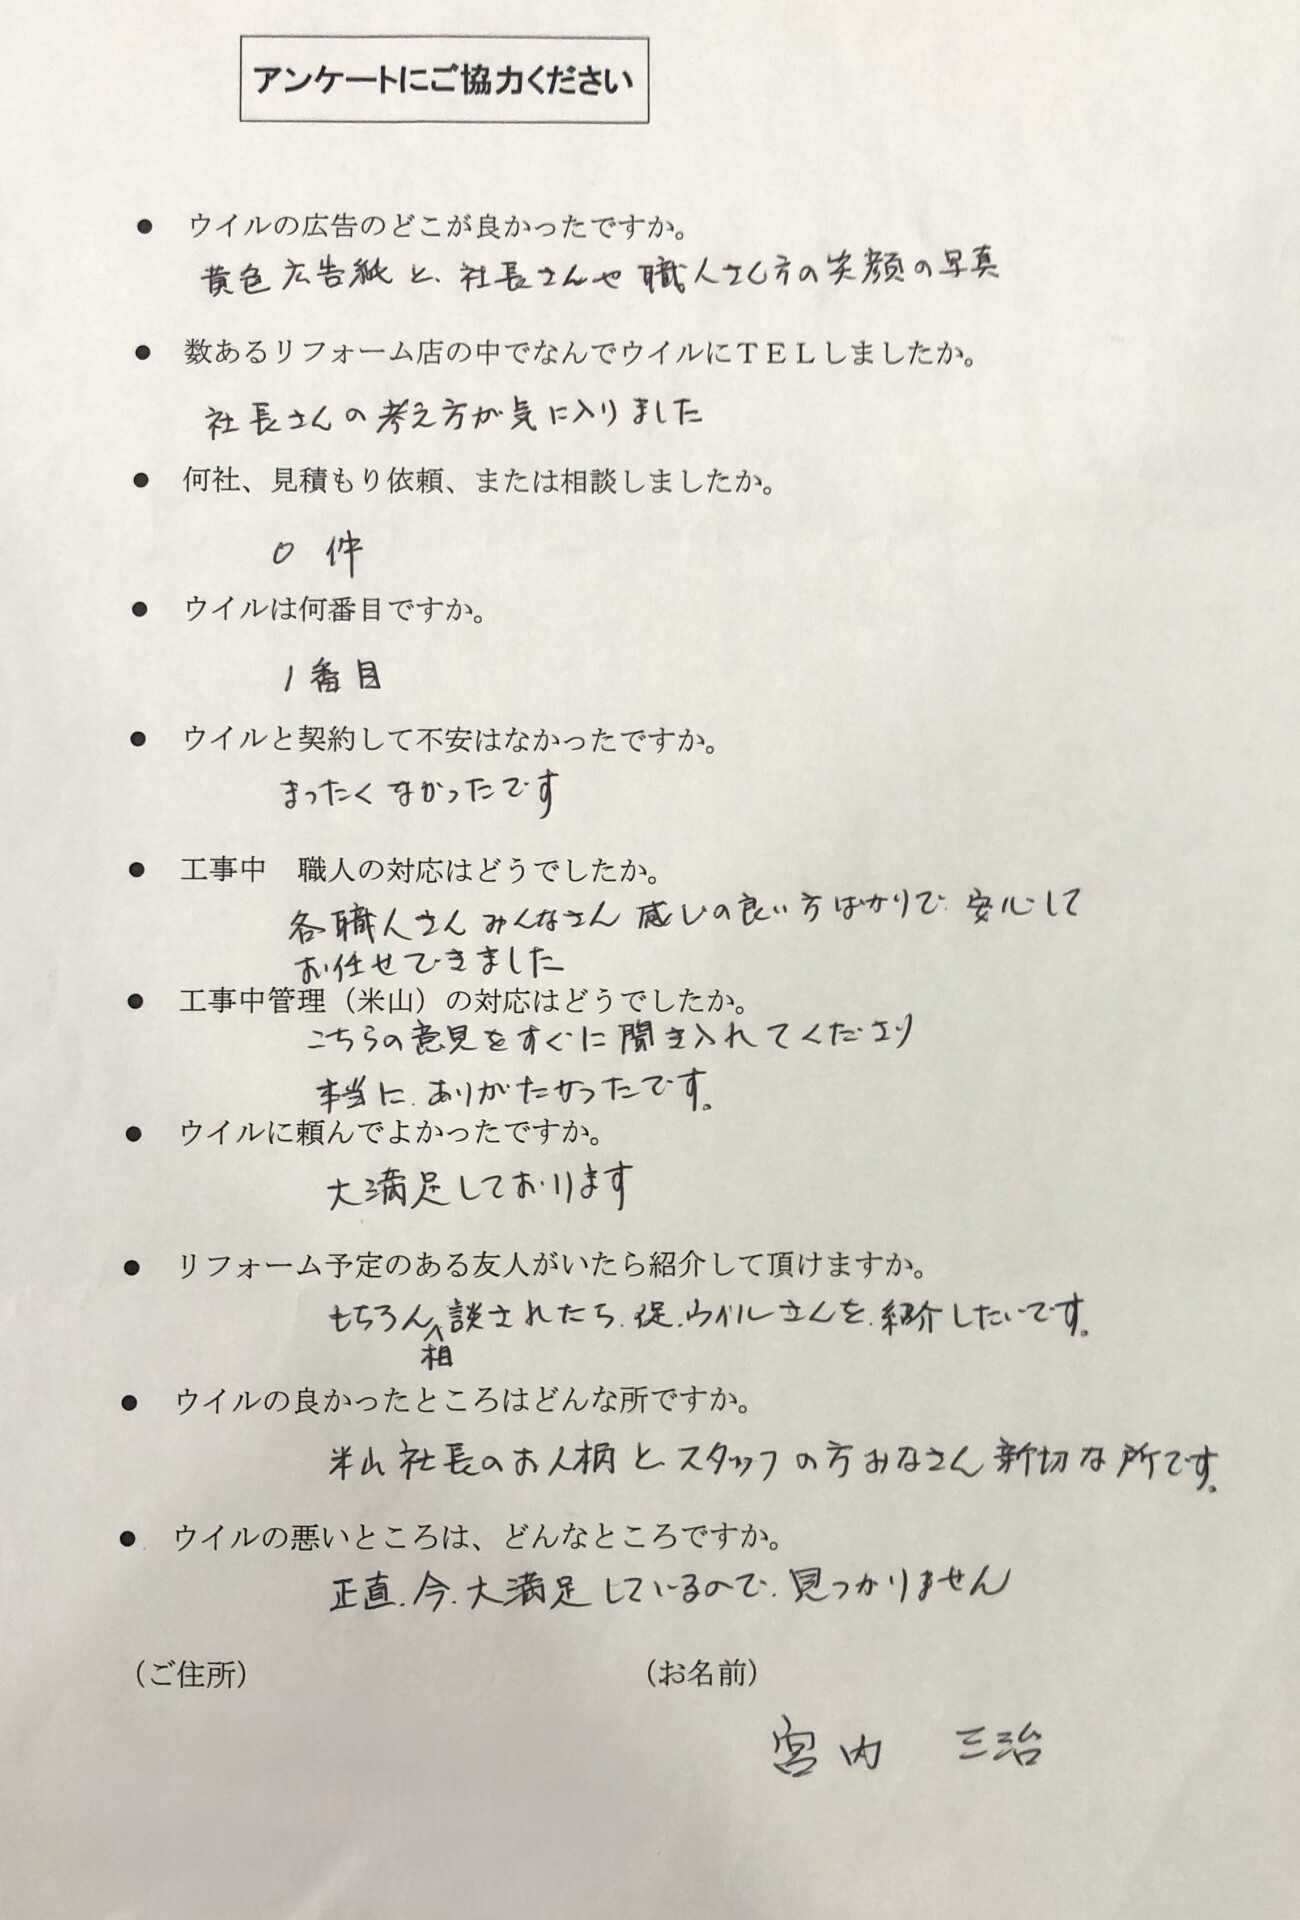 アンケートにご協力ください
● ウイルの広告のどこが良かったですか。
黄色広告紙と、社長さんや職人さん方の笑顔の写真
● 数あるリフォーム店の中でなんでウイルにＴＥＬしましたか。
社長さんの考え方が気に入りました
● 何社、見積もり依頼、または相談しましたか。
0 件
● ウイルは何番目ですか。
1番目
● ウイルと契約して不安はなかったですか。
まったくなかったです
● 工事中　職人の対応はどうでしたか。
各職人さんみんなさん感じの良い方ばかりで、安心して
お任せできました
● 工事中管理（米山）の対応はどうでしたか。
こちらの意見をすぐに聞き入れてくださり
本当に、ありがたかったです。
● ウイルに頼んでよかったですか。
大満足しております
● リフォーム予定のある友人がいたら紹介して頂けますか。
もちろん相談されたら、促、ウイルさんを、紹介したいです。
● ウイルの良かったところはどんな所ですか。
米山社長のお人柄と、スタッフの方みなさん新切な所です。
● ウイルの悪いところは、どんなところですか。
正直、今、大満足しているので、見つかりません
（ご住所）　（お名前）
宮内　三治